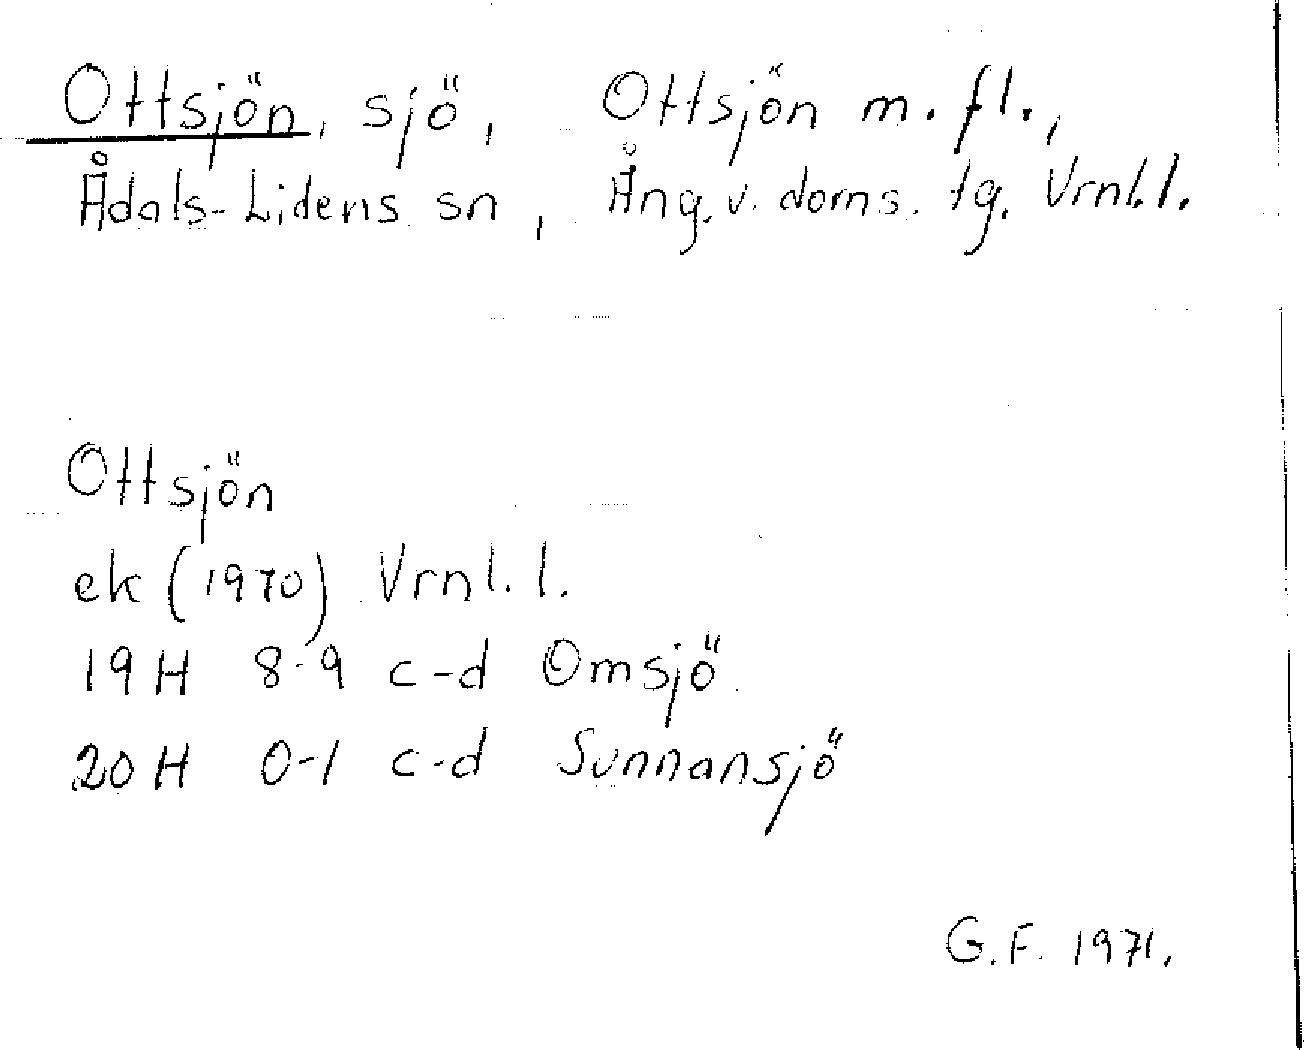 Ottsjön, sjö, Ottsjön m.fl.,
Ådals-Lidens sn, Ång.v. doms. tg. Vrnl.l.
Ottsjön
ek (1970) Vrnl.l.
19H 8-9 c-d Omsjö
20H 0-1 c-d Sunnansjö
G.F. 1971.